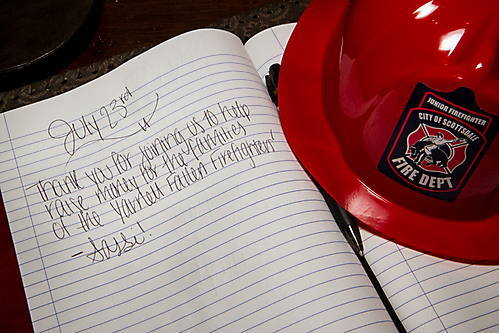 July 23rd
Thank you for joining us to help
raise money for the families
of the Yarnell Fallen Firefighters!
- Sassi.
JUNIOR FIREFIGHTER
CITY OF SCOTTSDALE
FIRE DEPT